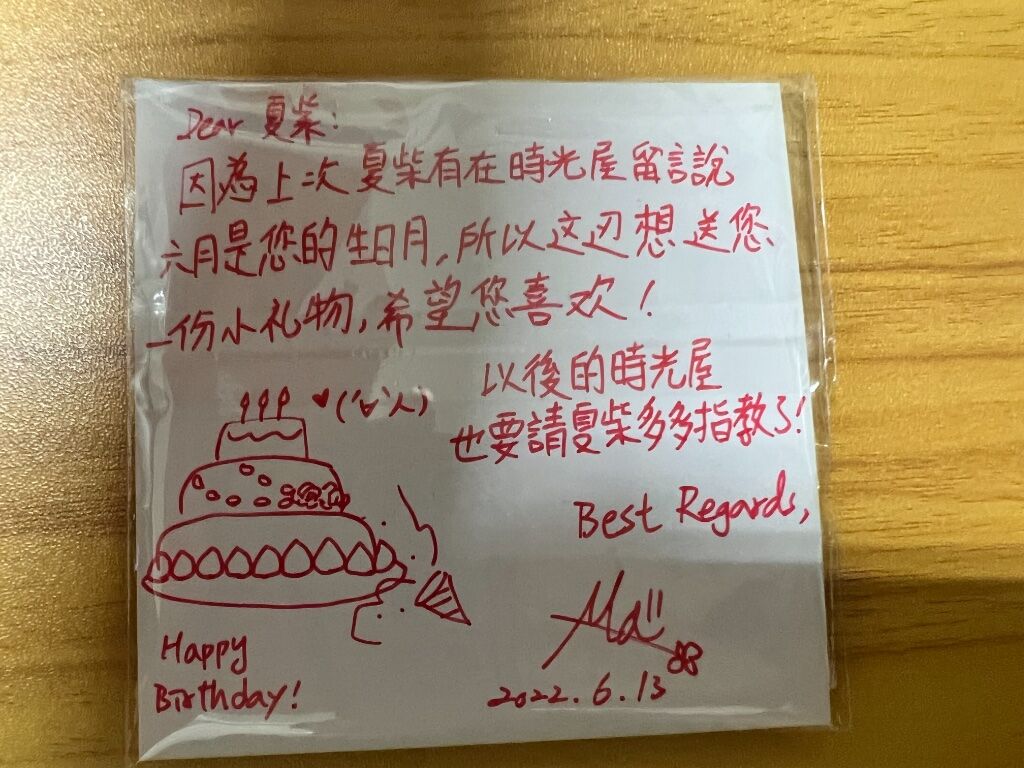 Dear 夏柴:
因為上次夏柴有在時光屋留言說
六月是您的生日月,所以这边想送您
一份小礼物,希望您喜欢!
♥(´∀`人)
以後的時光屋
也要請夏柴多多指教了!
Best Regards,
Happy
Birthday!
2022.6.13